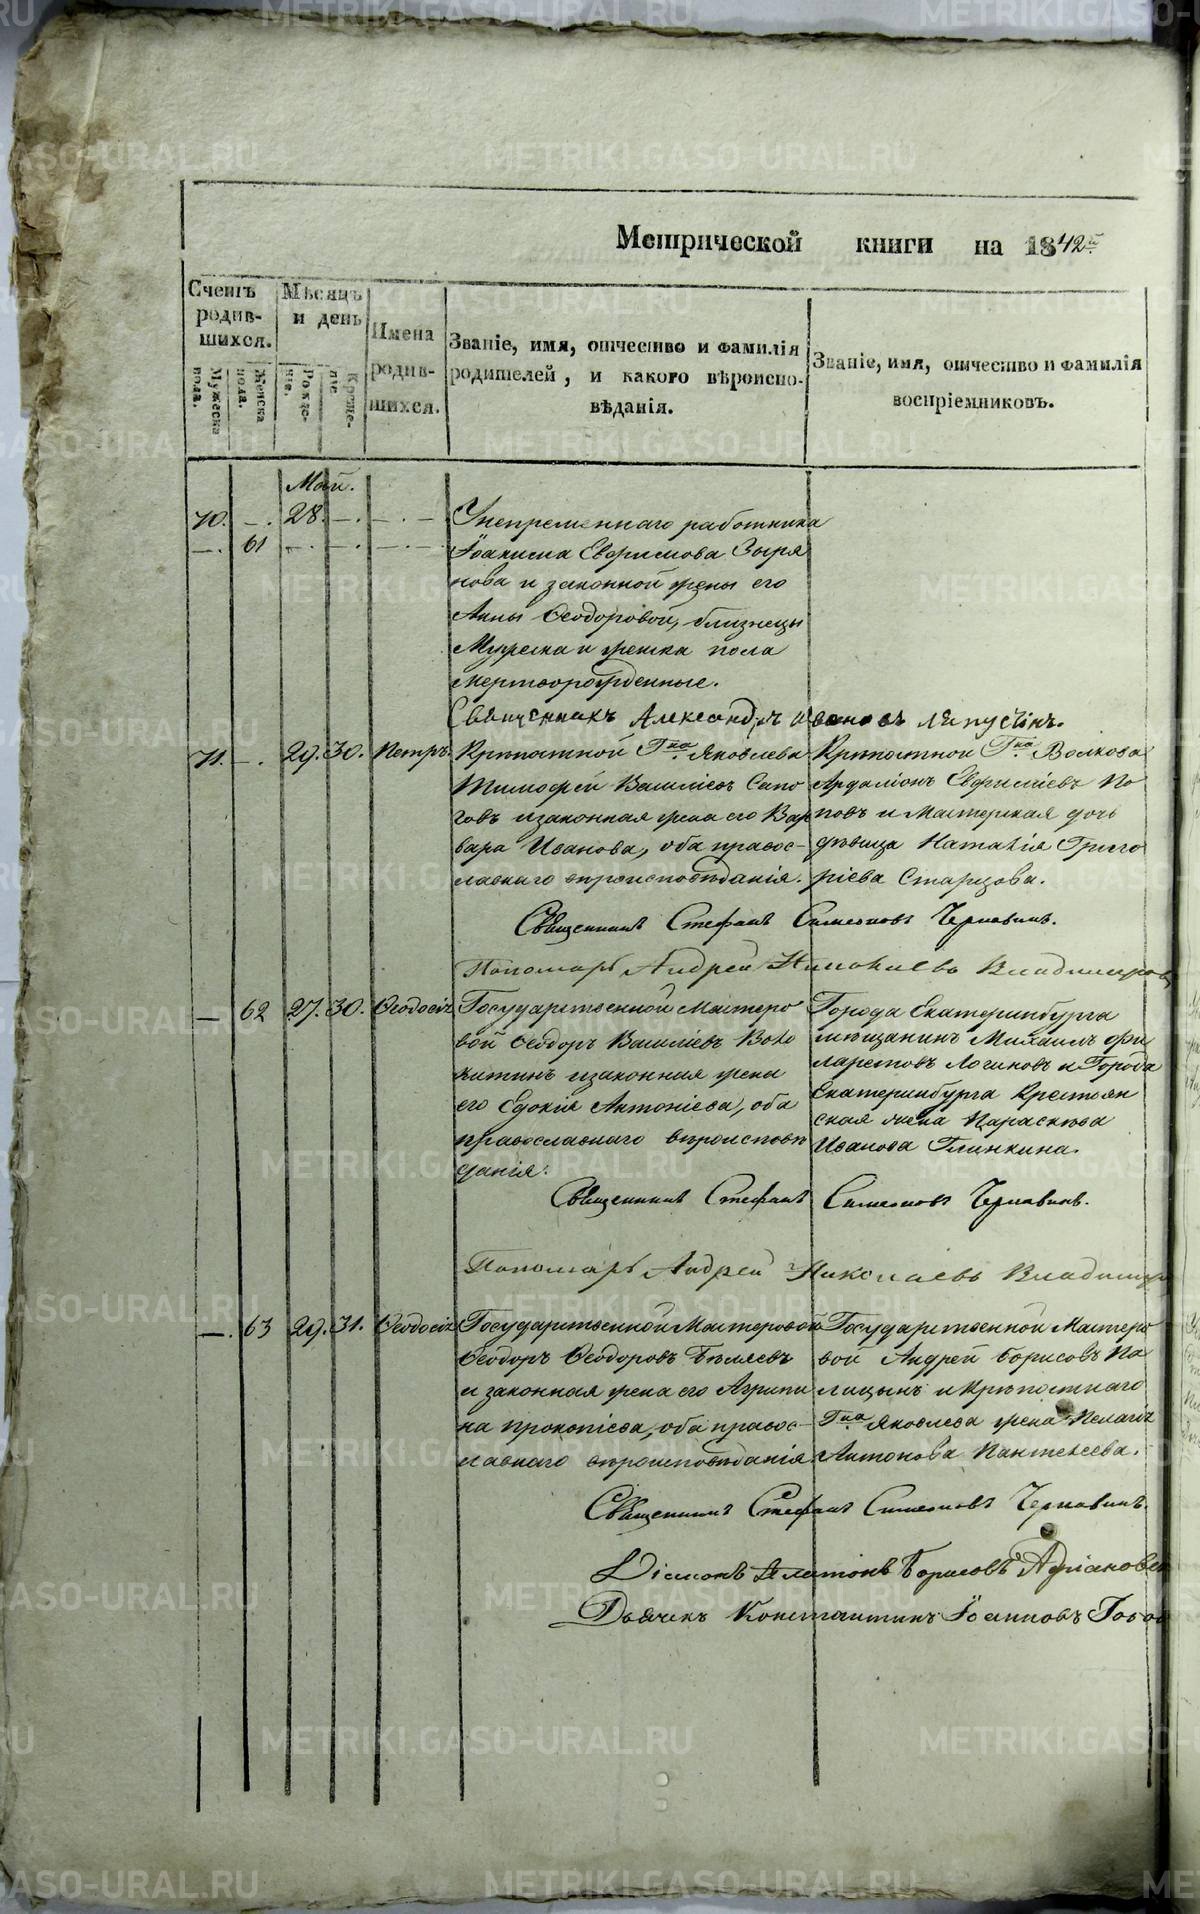 Метрической книги на 1842й
Счетъ родив-
шихся.
Мужеска пола.
Женска пола.
Мѣсяцъ
и день
Рожде-
нія.
Креще-
нія
Имена
родив-
шихся.
Званіе, имя, отчество и фамилія
родителей, и какого вѣроиспо-
вѣданія.
Званіе, имя, отчество и фамилія
воспріемниковъ.
Май.
70. —. 28. —. —. — Унепременнаго работника
—. 61 —. —. —. — Іоакима Евфимова Зыря
нова и законной жены его
Анны Ѳеодоровой, близнецы
Мужеска и женска пола
мертворожденные.
Священникъ Александръ Ивановъ Ляпустинъ.
71. —. 29. 30. Петръ.
Крѣпостной Гна Яковлева
Тимофей Василіевъ Сапо
говъ и законная жена его Вар
вара Иванова, оба правос-
лавнаго вѣроисповѣданія.
Крѣпостной Гна Волкова
Ардаліонъ Евфиміевъ По
повъ и Мастерская дочь
дѣвица Наталія Григо
ріева Старцова.
Священникъ Стефанъ Симеоновъ Чернавинъ.
Пономарь Андрей Николаевъ Владимиров
— 62 27. 30. Ѳеодосія
Государственной Мастеро
вой Ѳеодоръ Василіевъ
и законная жена
его Евдокія Антоніева, оба
православнаго вѣроисповѣ
данія.
Города Екатеринбурга
мѣщанинъ Михаилъ Фи
ларетовъ Логиновъ и Города
Екатеринбурга Крестьян
ская жена Параскева
Иванова Глинкина.
Священникъ Стефанъ Симеоновъ Чернавинъ.
Пономарь Андрей Николаевъ Владимир
—. 63 29. 31. Ѳеодосія
Государственной Мастеровой
Ѳеодоръ Ѳеодоровъ Бѣляевъ
и законная жена его Агрипи
на Прокопіева, оба правос-
лавнаго вѣроисповѣданія
Государственной Мастеро
вой Андрей Борисовъ Па
лицынъ и Крѣпостнаго
Гна Яковлева жена Пелагія
Антонова Пантелеева.
Священникъ Стефанъ Симеоновъ Чернавинъ.
Діаконъ Платонъ Борисовъ Адріановск
Дьячекъ Константинъ Іоанновъ
METRIKI.GASO-URAL.RU